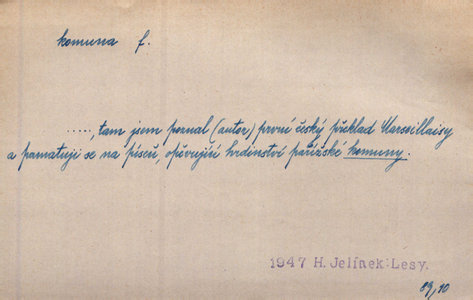 komuna f.
....., tam jsem poznal (autor) první český překlad Marseillaisy
a pamatuji se na píseň opěvující hrdinství pařížské komuny.
1947 H. Jelínek: Lesy.
89,10